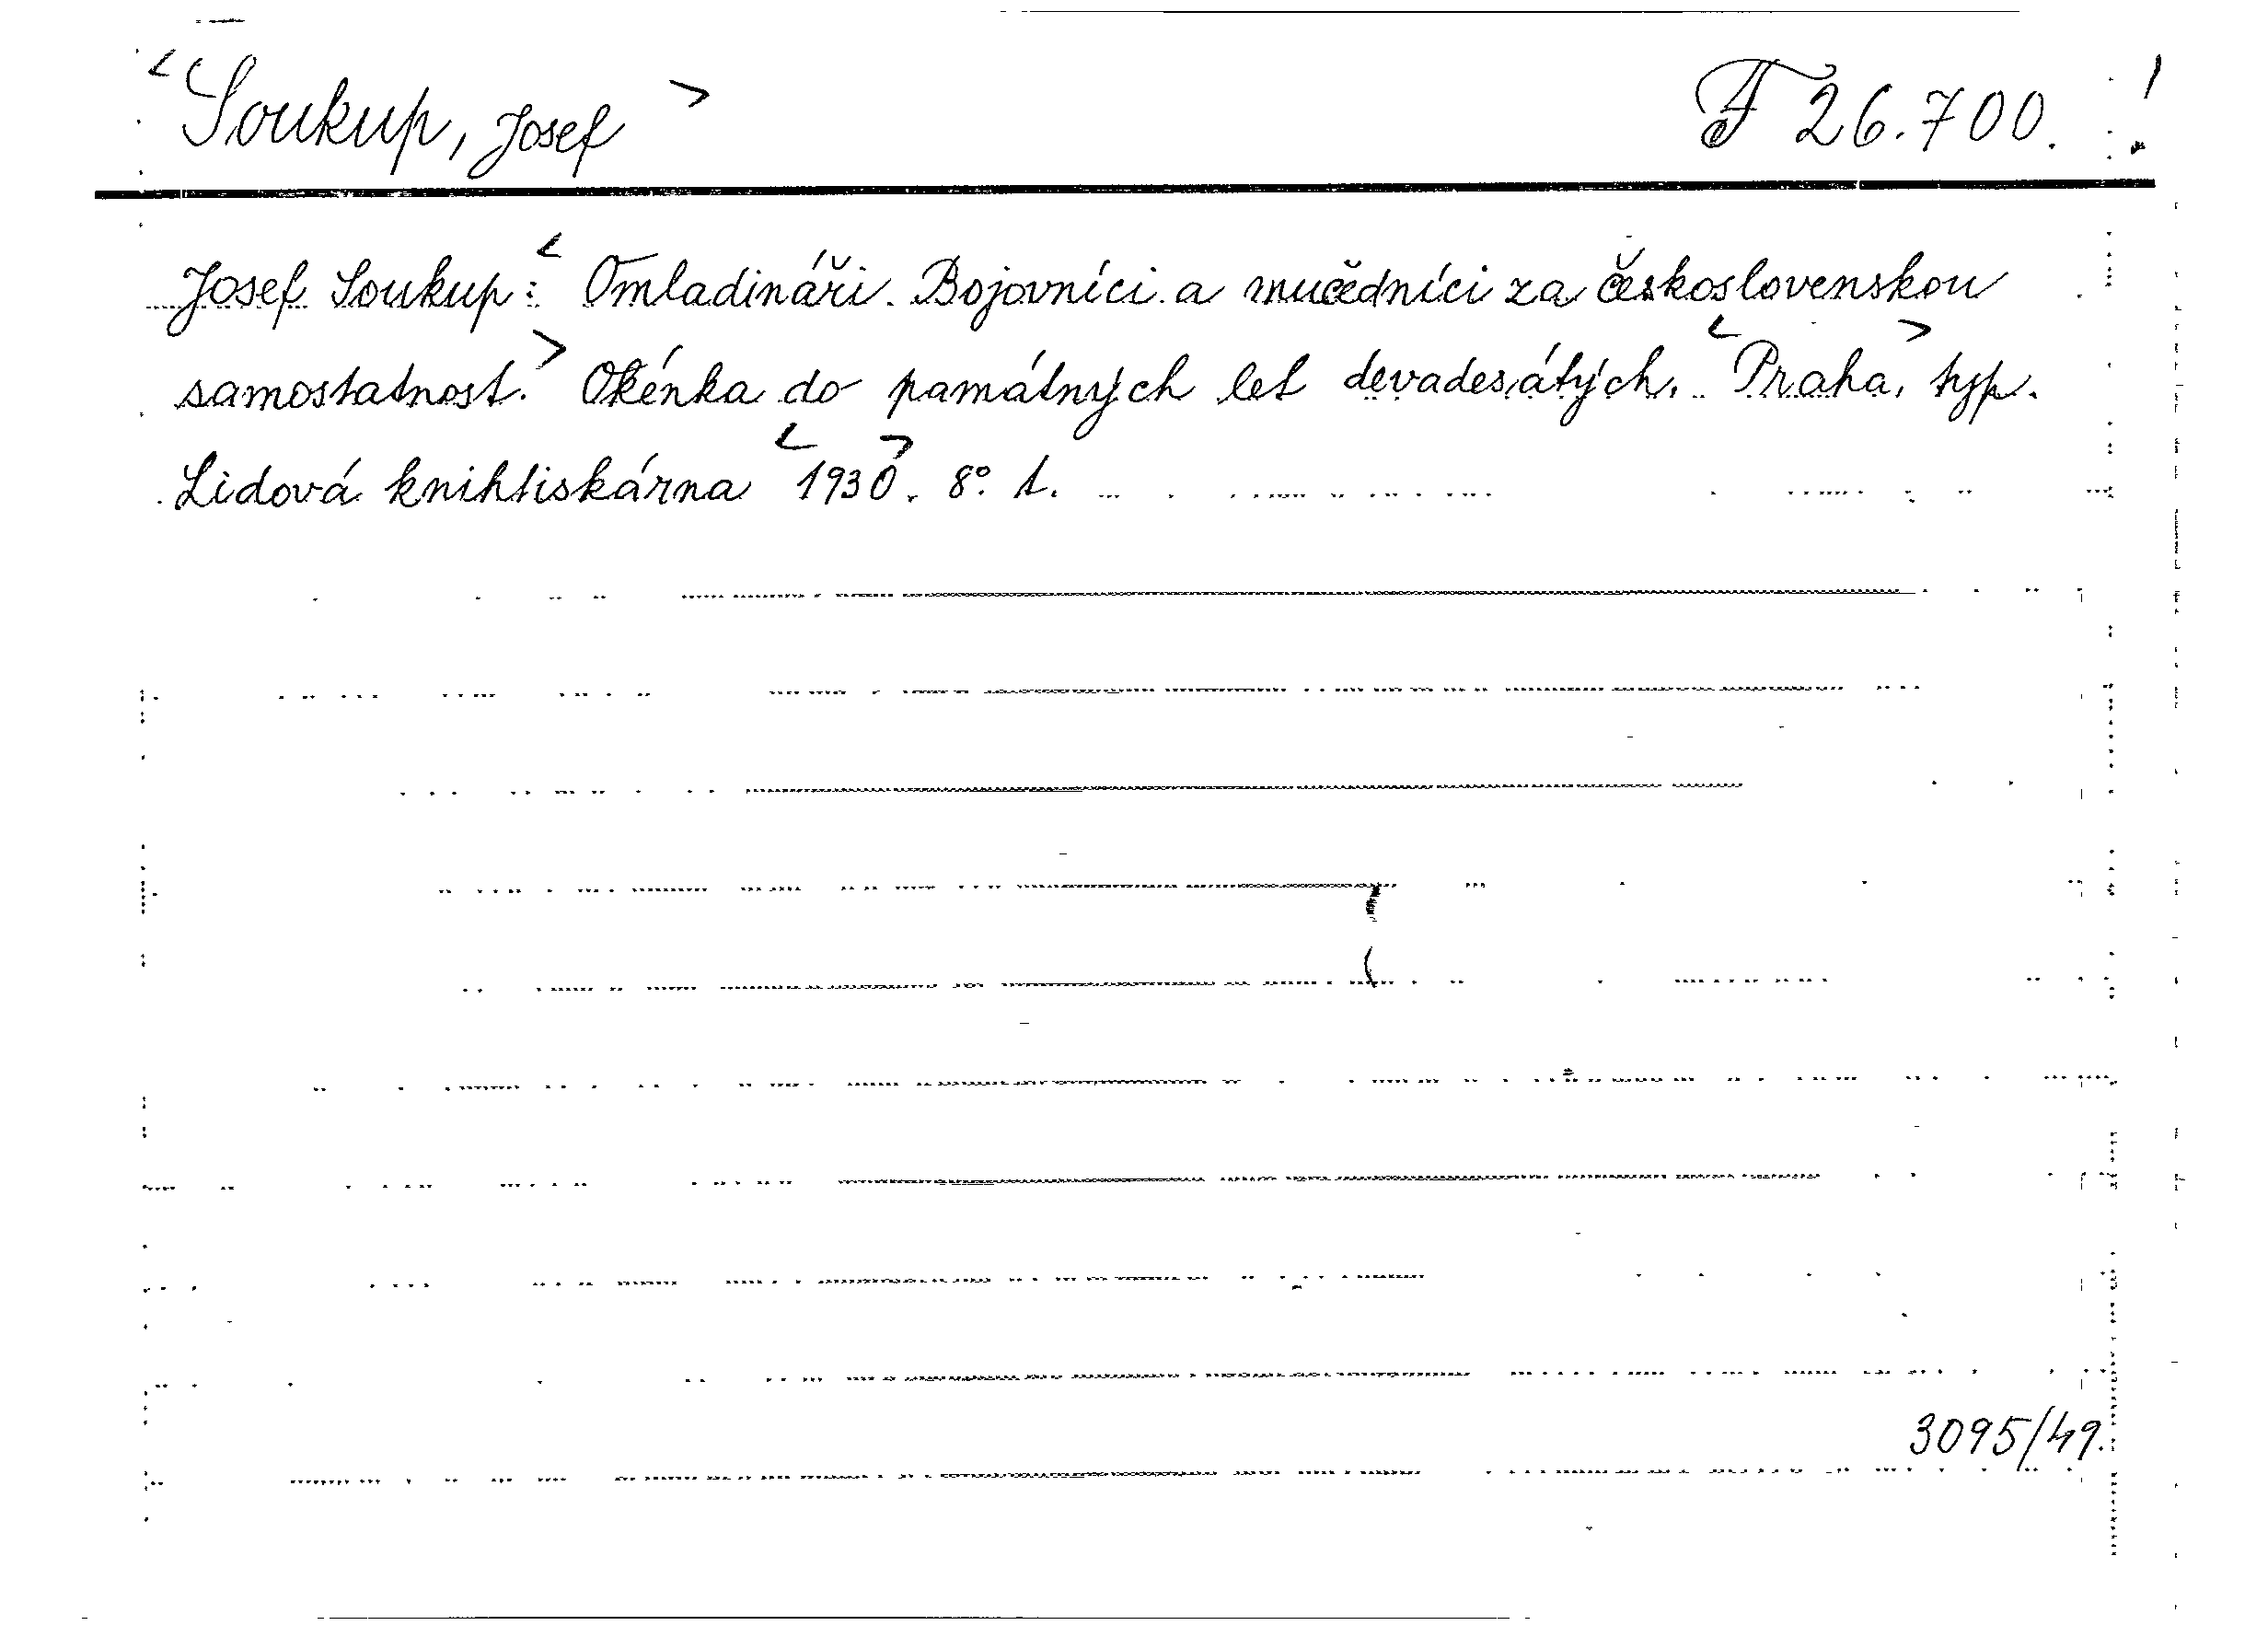 <Soukup, Josef> F 26.700. !
Josef Soukup: <Omladináři. Bojovníci a mučedníci za československou
samostatnost.> Okénka do památných let devadesátých. <Praha,> typ.
Lidová knihtiskárna <1930>. 8°. t.
3095/49.